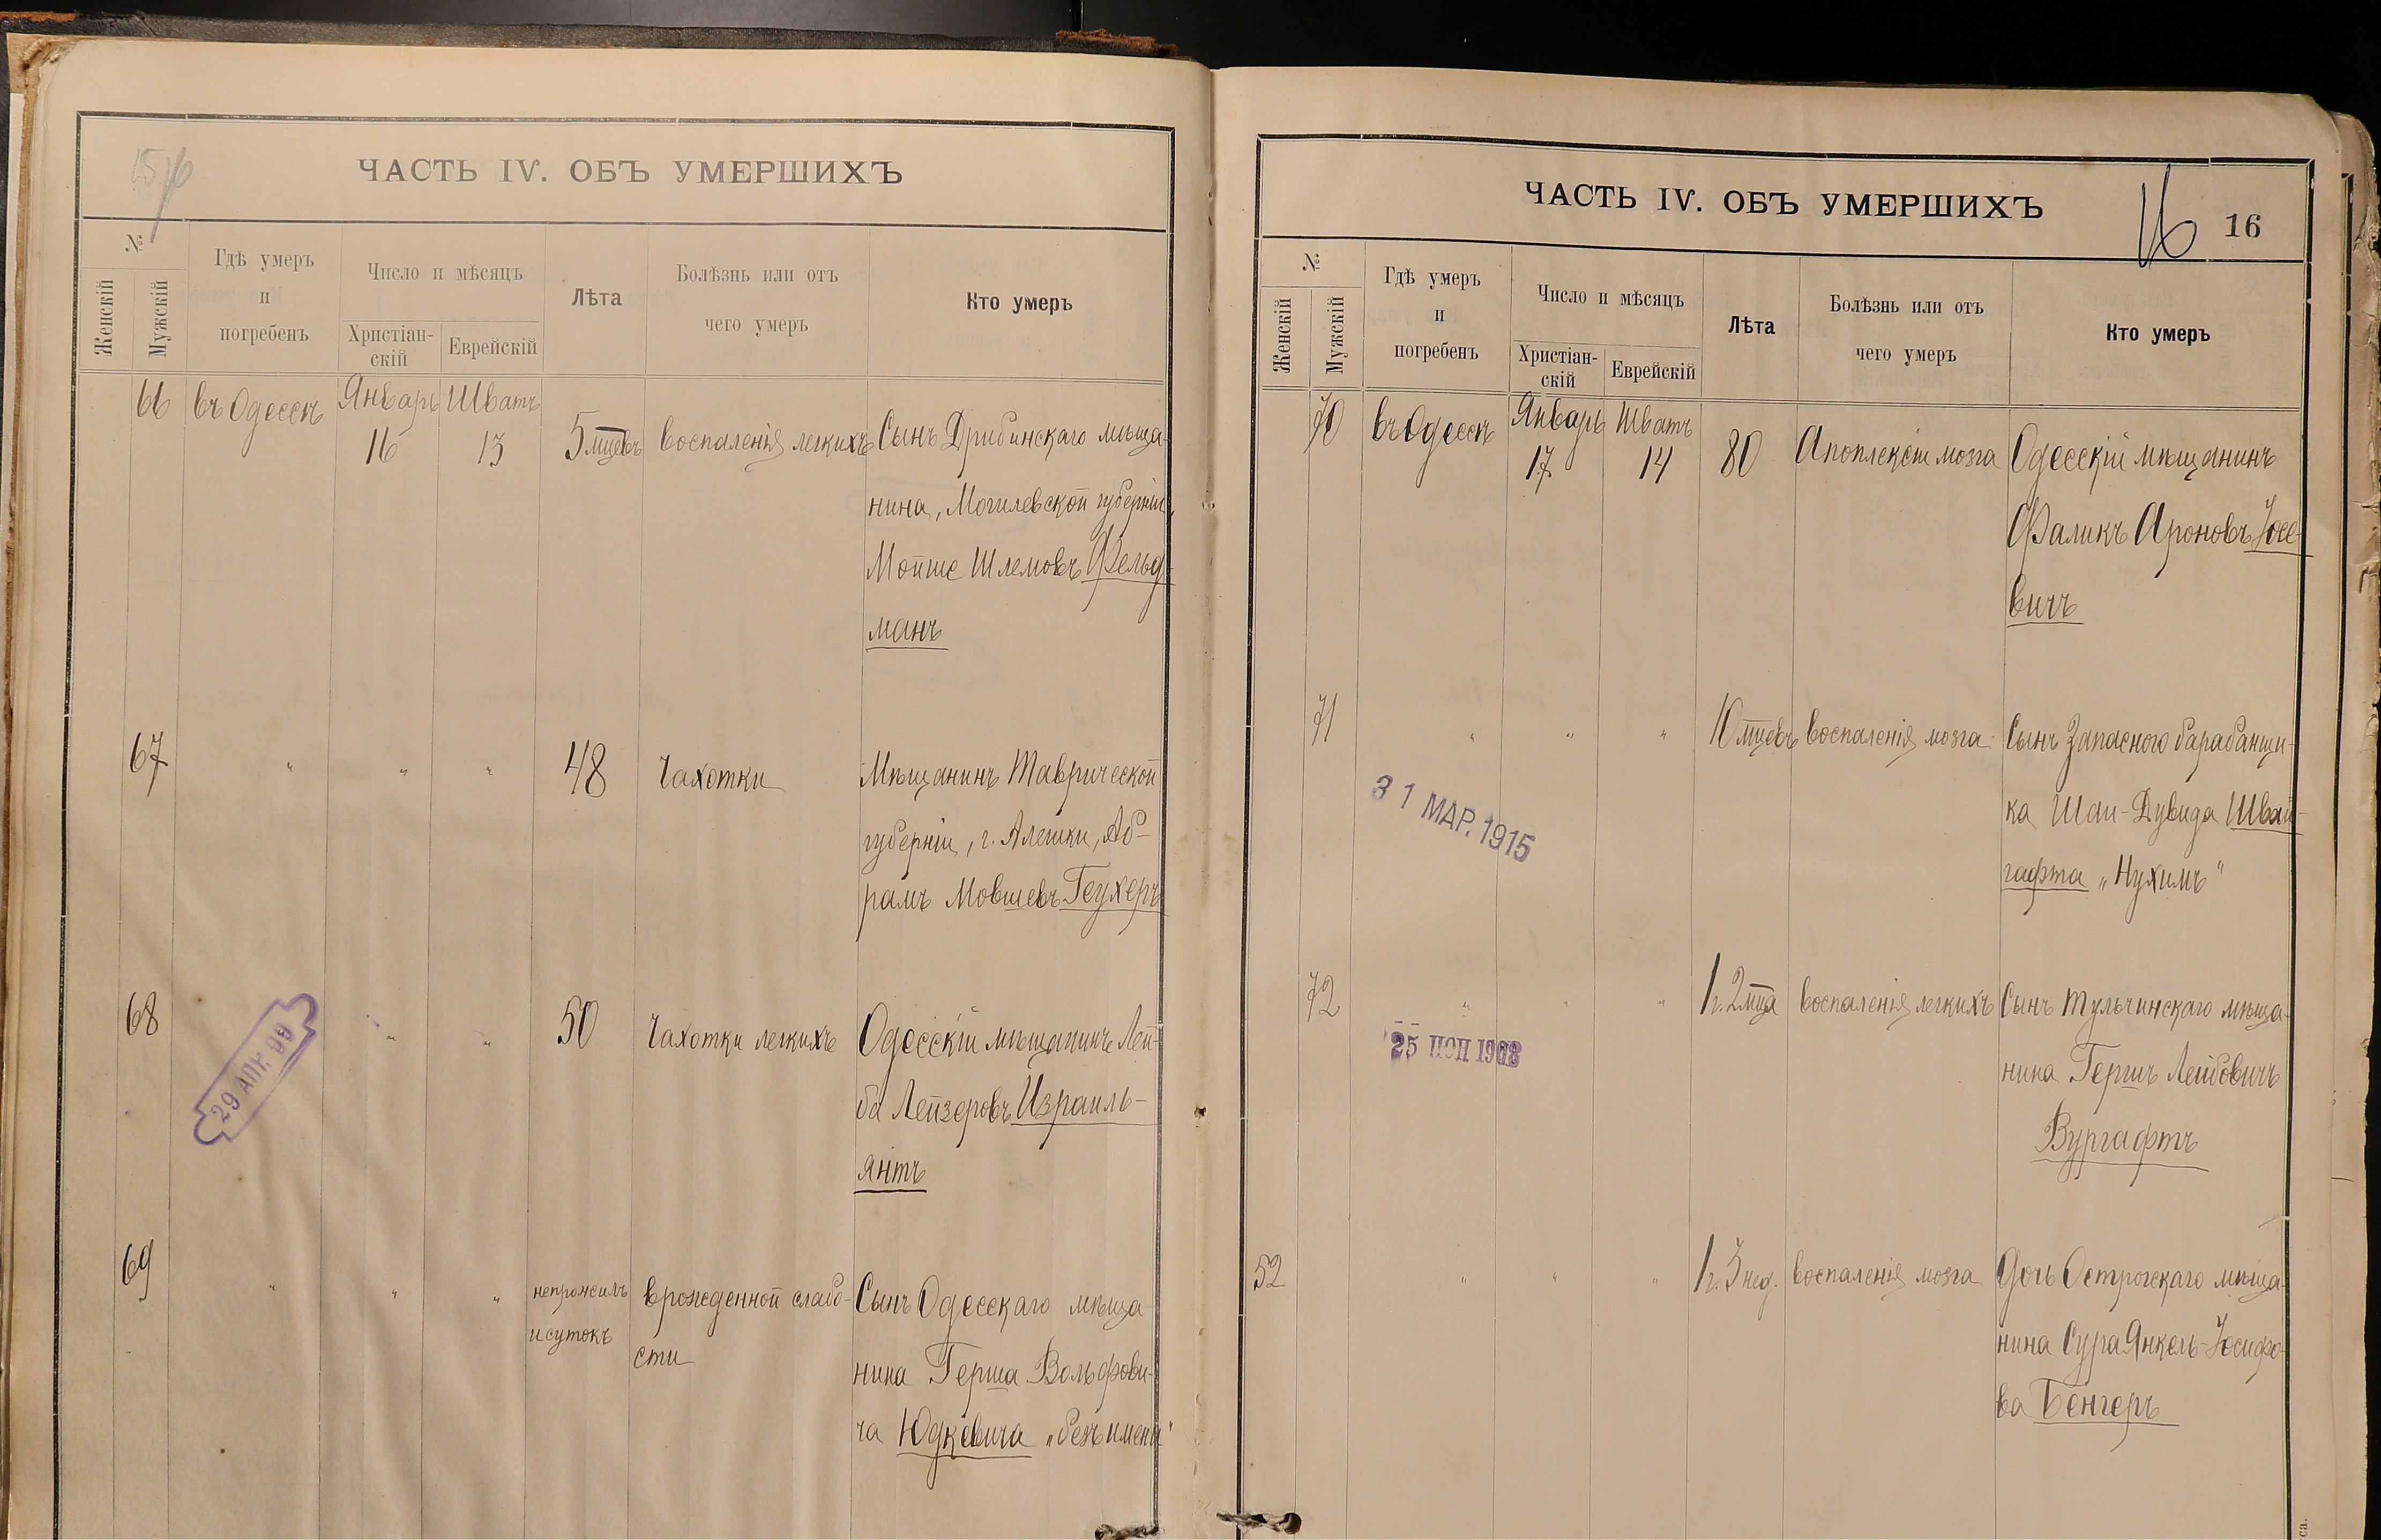 ЧАСТЬ IV. ОБЪ УМЕРШИХЪ
№
Женскій
Мужскій
Гдѣ умеръ
и
погребенъ
Число и мѣсяцъ
Христіан-
скій
Еврейскій
Лѣта
Болѣзнь или отъ
чего умеръ
Кто умеръ
66 въ Одессѣ Январь Шватъ
16 13 5 мцевъ воспаленія легкихъ Сынъ Дрибинскаго мѣща-
нина, Могилевской губерніи,
Мойше Шлемовъ Фельд-
манъ
67 " " " 48 Чахотки Мѣщанинъ Таврической
губерніи, г. Алешки, Аб-
рамъ Мовшевъ Геухеръ
68 " " 50 Чахотки легкихъ Одесскій мѣщанинъ Лей-
ба Лейзеровъ Израиль-
янтъ
29 АПР. 99
69 " " " непрожилъ врожденной слабо- Сынъ Одесскаго мѣща-
и сутокъ сти нина Герша Вольфови-
ча Юдкевича „безъ имени"
ЧАСТЬ IV. ОБЪ УМЕРШИХЪ
16 16
№
Женскій
Мужскій
Гдѣ умеръ
и
погребенъ
Число и мѣсяцъ
Христіан-
скій
Еврейскій
Лѣта
Болѣзнь или отъ
чего умеръ
Кто умеръ
70 въ Одессѣ Январь Шватъ
17 14 80 Апоплексіи мозга Одесскій мѣщанинъ
Фаликъ Ароновъ Іосе-
вичъ
71 " " " 10 мцевъ воспаленія мозга Сынъ Запасного барабанщи-
ка Шаи-Дувида Швай-
гафта „Нухимъ"
31 МАР. 1915
72 " " " 1 г. 2 мца воспаленія легкихъ Сынъ Тульчинскаго мѣща-
нина Гершъ Лейбовичъ
Вургафтъ
25
52 " " " 1 г. 3 нед. воспаленія мозга Дочь Острогскаго мѣща-
нина Сура Янкель-Іосифо-
ва Бенгеръ